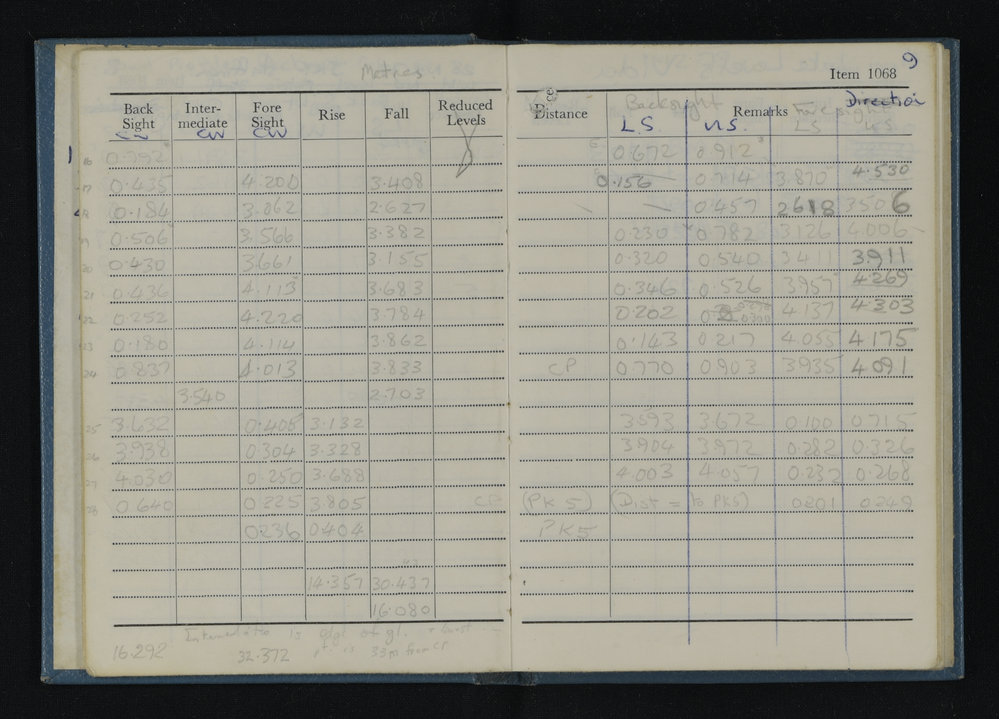 Metres
Back Sight Inter-mediate Fore Sight Rise Fall Reduced Levels
CW CW
16 0.792
17 0.435 4.200 3.408
18 0.184 3.062 2.627
19 0.506 3.566 3.382
20 0.430 3.661 3.155
21 0.436 4.113 3.683
22 0.252 4.220 3.784
23 0.180 4.114 3.862
24 0.837 4.013 3.833
3.540 2.703
25 3.632 0.408 3.132
26 3.938 0.304 3.328
27 4.030 0.250 3.688
28 0.640 0.225 3.805 CP
0.236 0.404
14.357 30.437
16.080
Intermediate is of gl.
16.292 32.372 pt. is 33m from CP
9
Item 1068
Distance Backsight Remarks Foresight Direction
L.S. U.S. L.S. U.S.
0.672 0.912
0.156 0.714 3.870 4.530
0.457 2618 3506
0.230 0.782 3.126 4.006
0.320 0.540 3.411 3.911
0.346 0.526 3.957 4.269
0.202 0.300 4.137 4.303
0.143 0.217 4.055 4.175
CP 0.770 0.903 3.935 4.091
3.593 3.672 0.100 0.715
3.904 3.972 0.282 0.326
4.003 4.057 0.232 0.268
(PK 5) (Dist = to PK5) 0.201 0.249
PK5